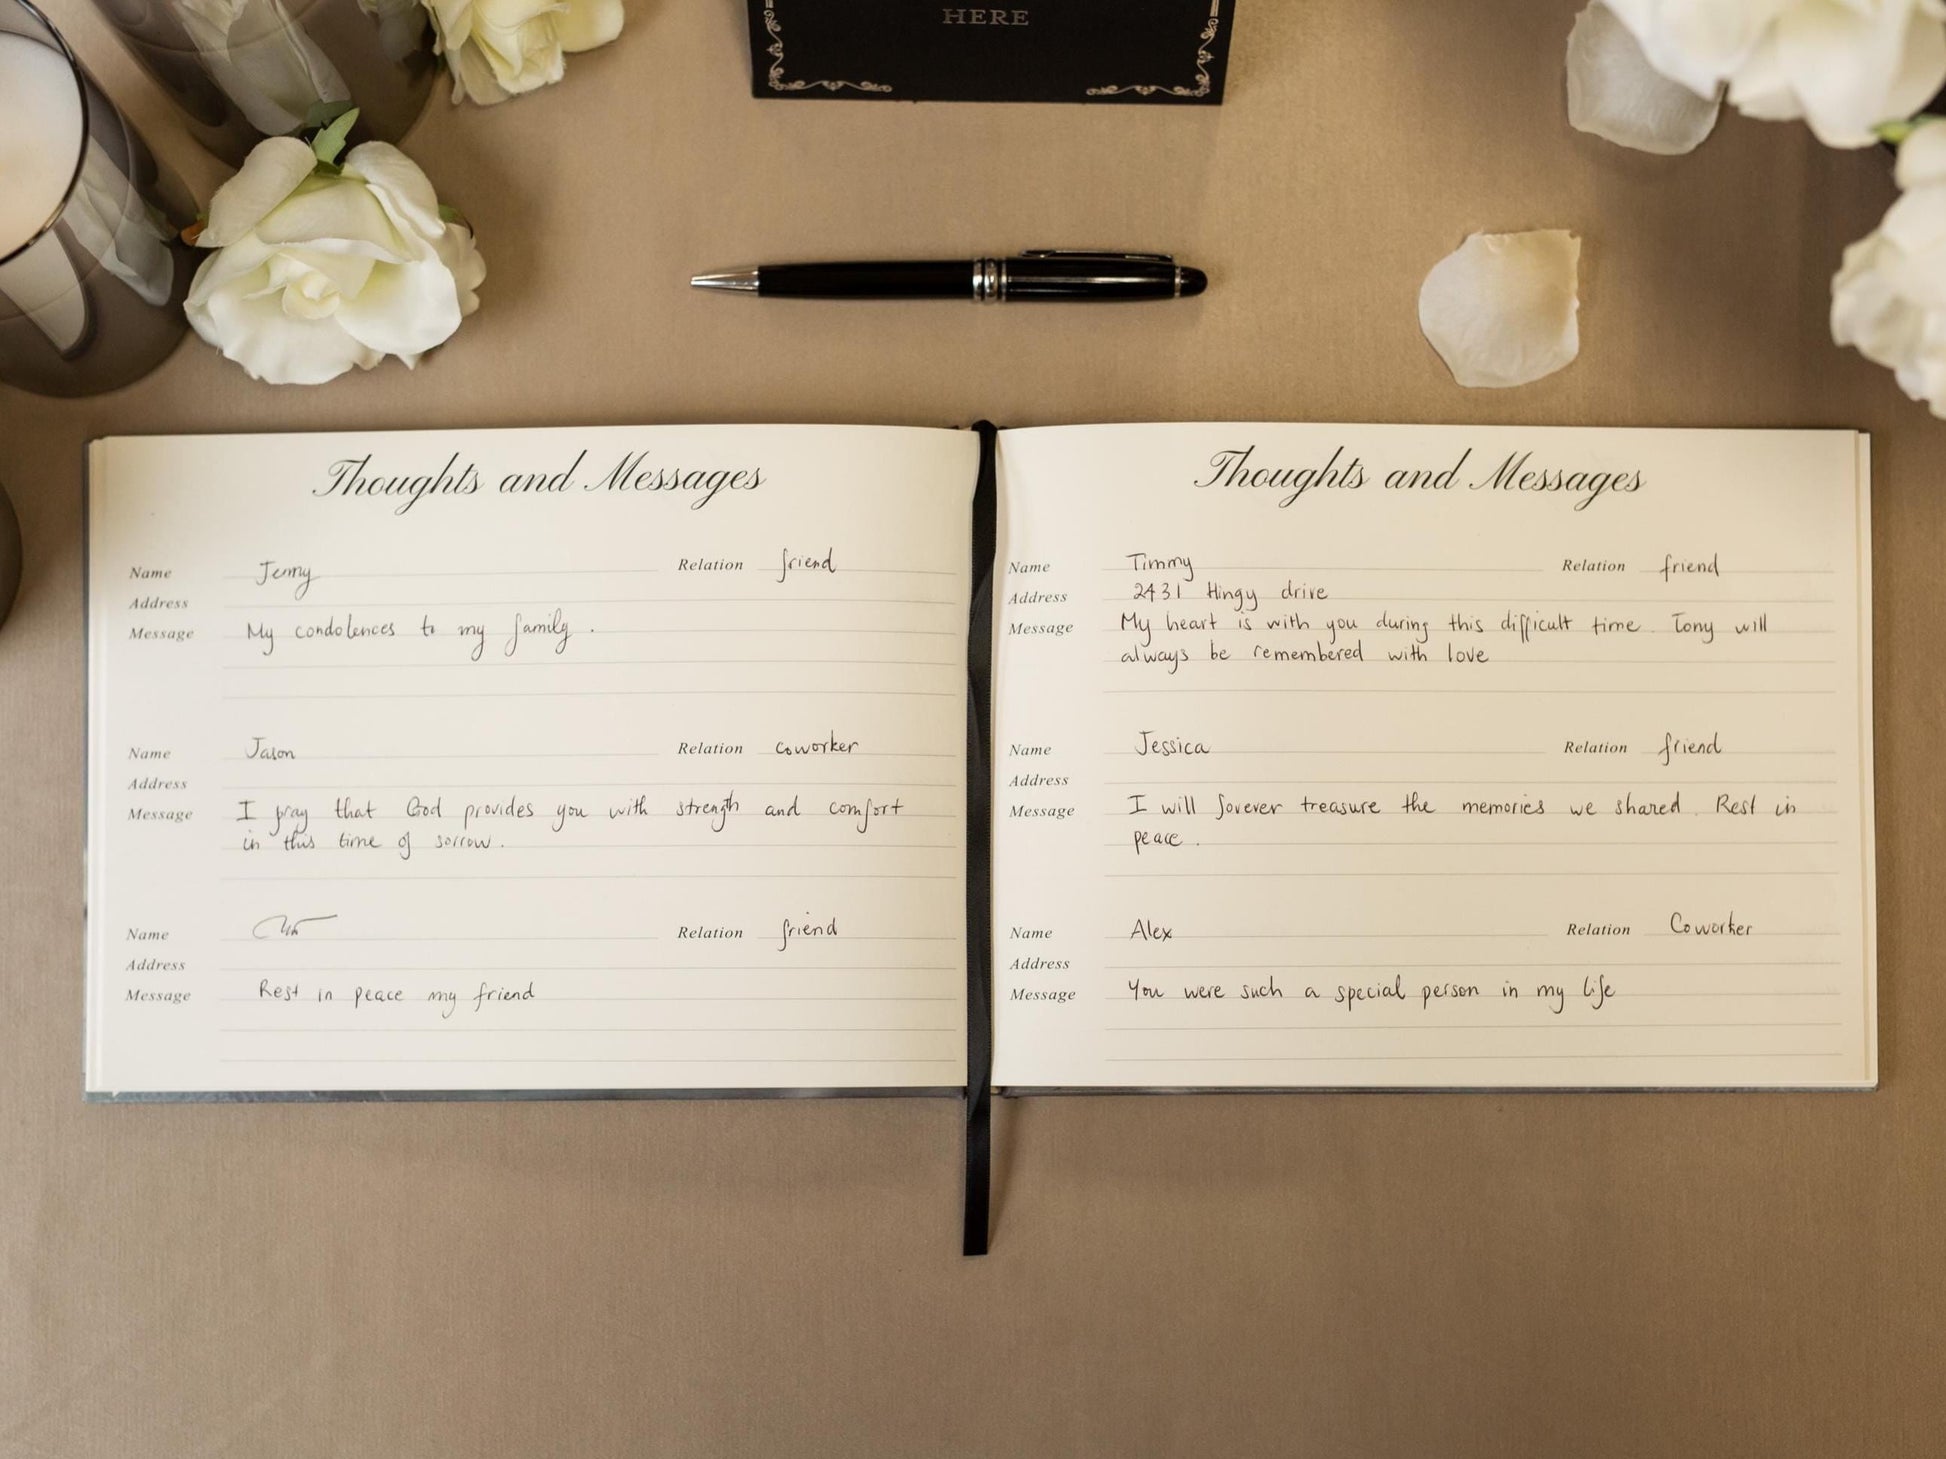 HERE
Thoughts and Messages
Name Jenny Relation friend
Address
Message My condolences to my family.
Name Jason Relation coworker
Address
Message I pray that God provides you with strength and comfort
in this time of sorrow.
Name Relation friend
Address
Message Rest in peace my friend
Thoughts and Messages
Name Timmy Relation friend
Address 2431 Hingy drive
Message My heart is with you during this difficult time. Tony will
always be remembered with love
Name Jessica Relation friend
Address
Message I will forever treasure the memories we shared. Rest in
peace.
Name Alex Relation Coworker
Address
Message You were such a special person in my life